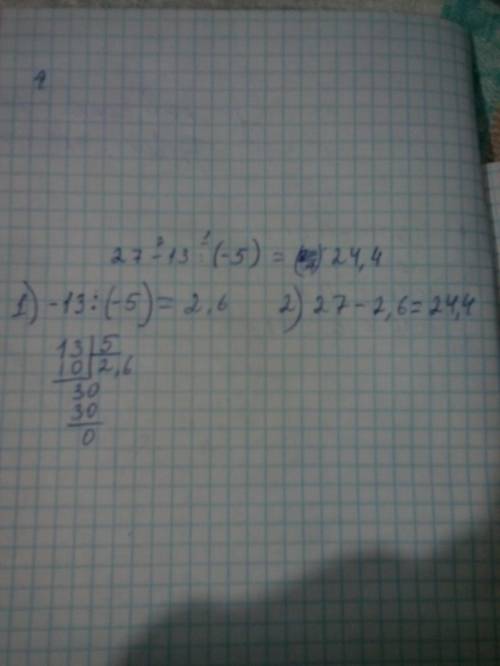 27 - 13 : (-5) = 24,4
1) -13 : (-5) = 2,6 2) 27 - 2,6 = 24,4
13 | 5
10 | 2,6
30
30
0